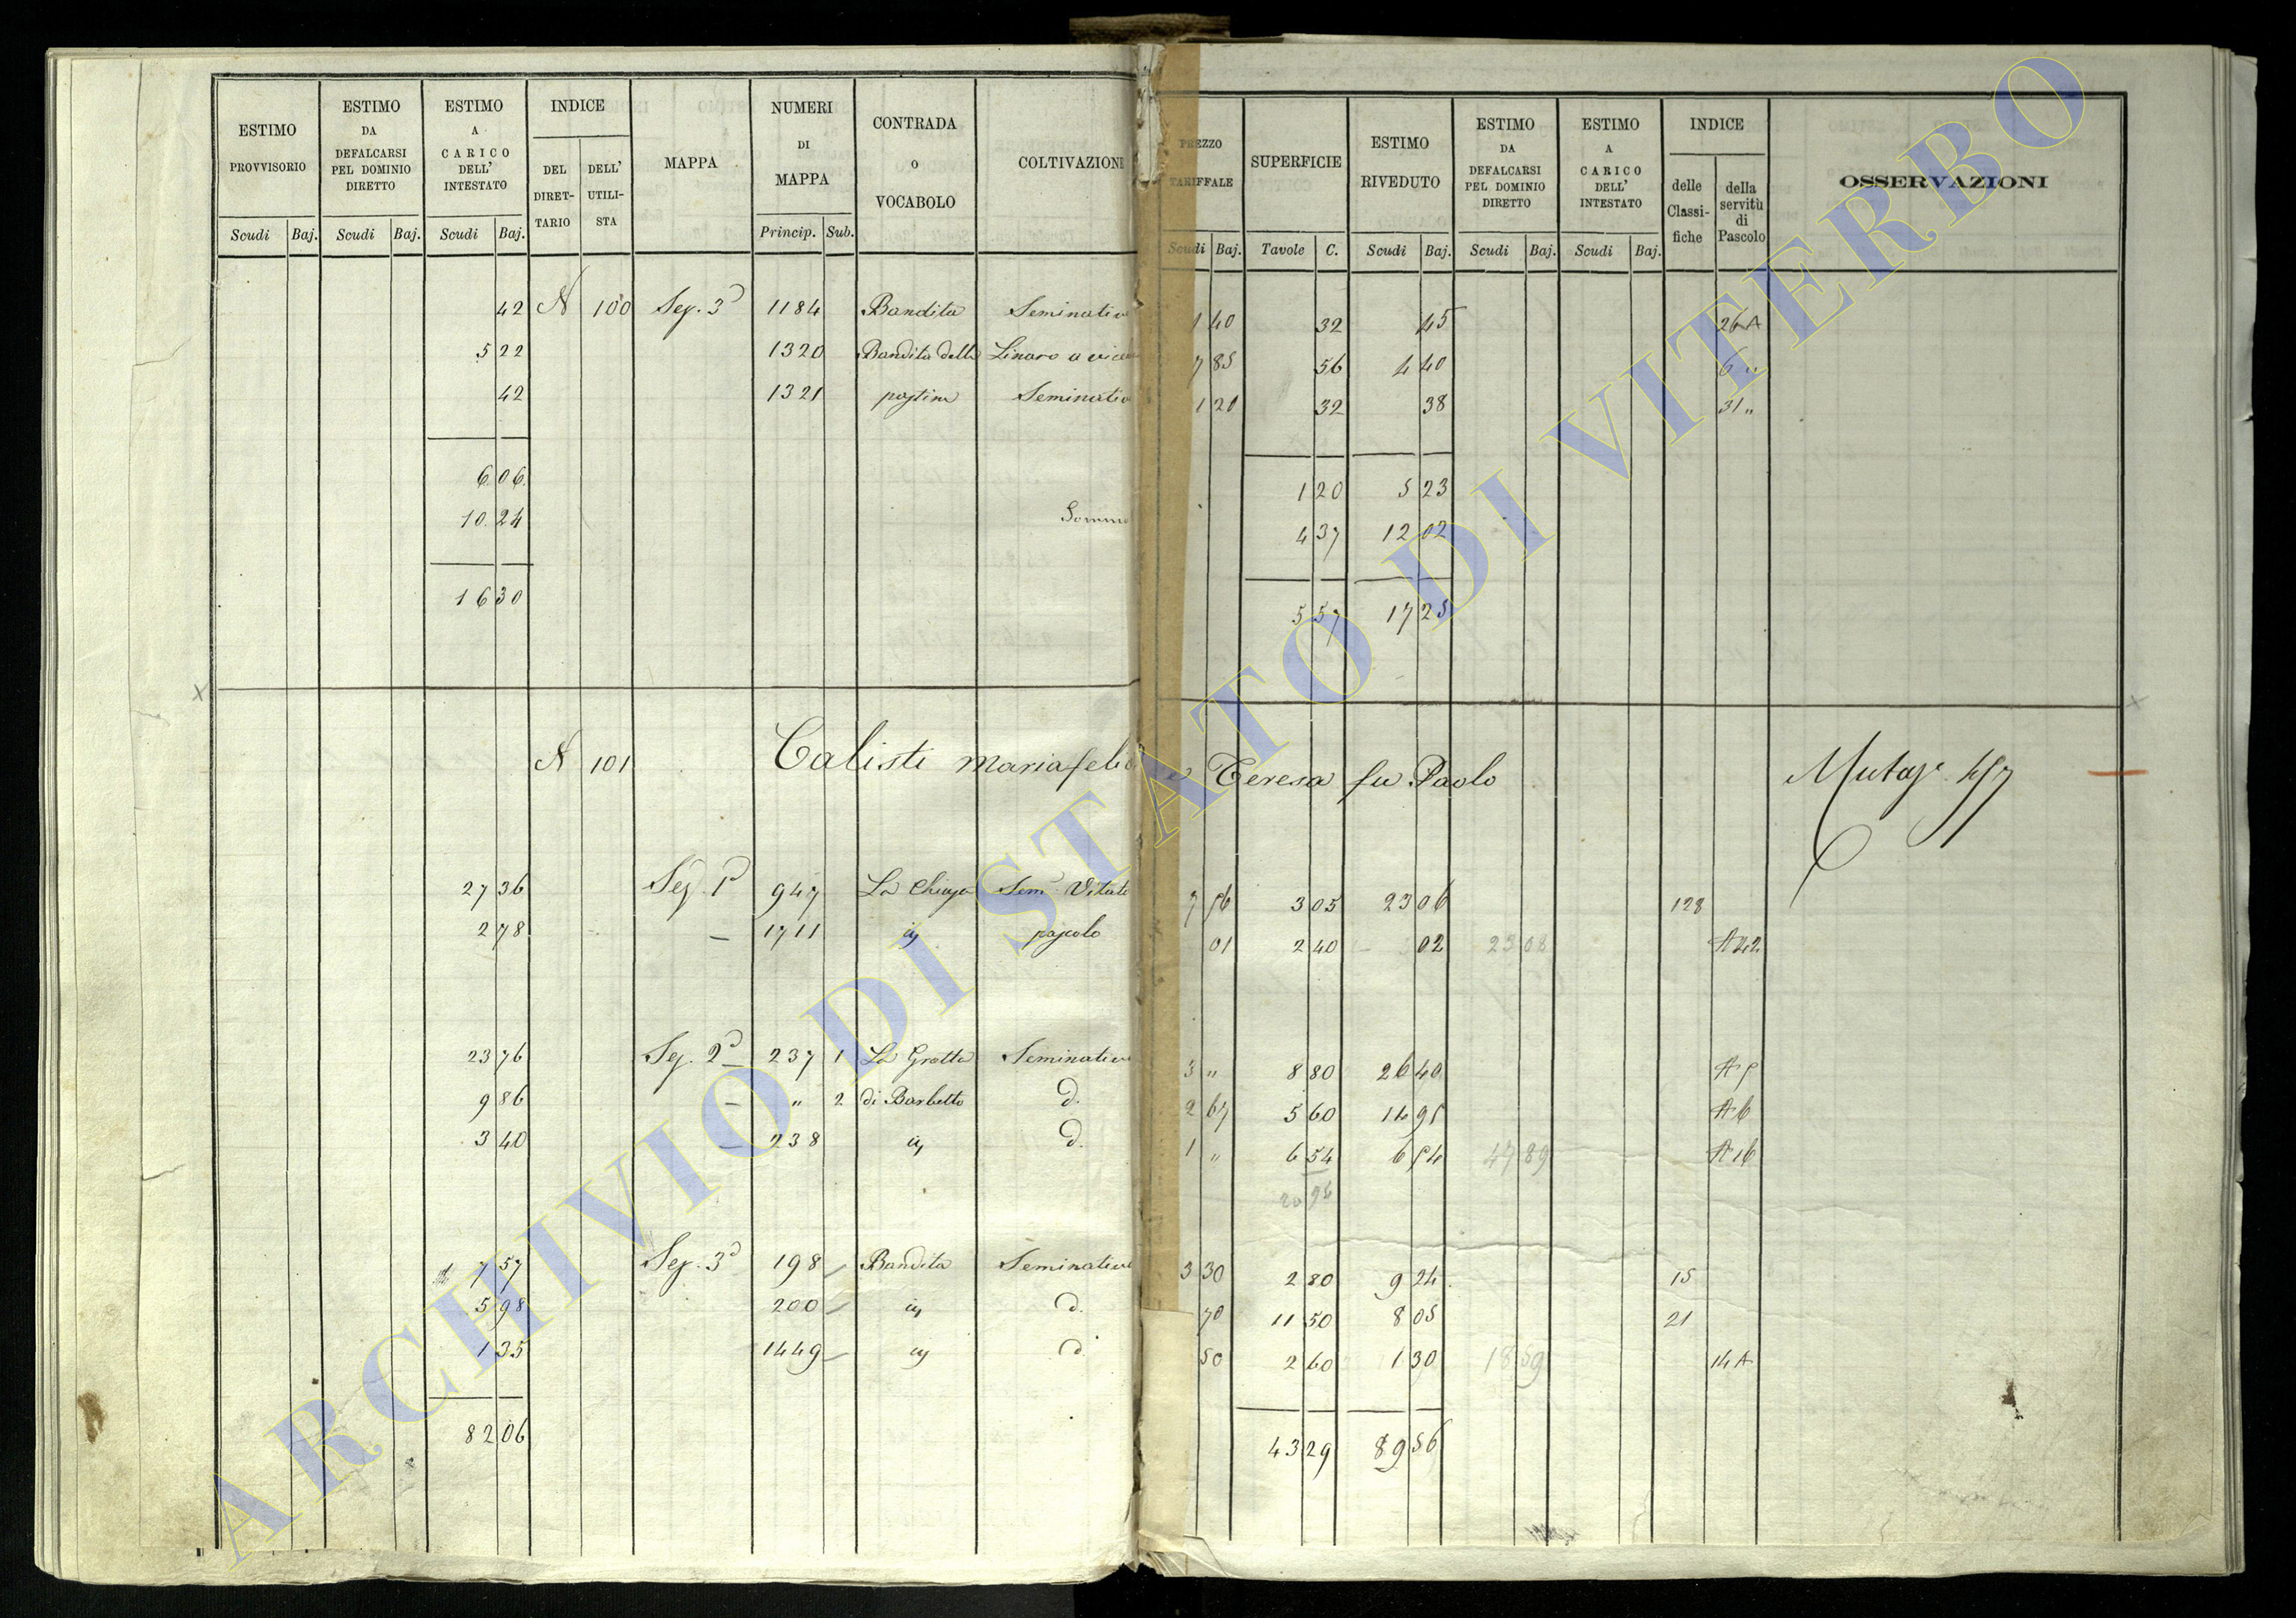 ESTIMO PROVVISORIO | ESTIMO DA DEFALCARSI PEL DOMINIO DIRETTO | ESTIMO A CARICO DELL' INTESTATO | INDICE | MAPPA | NUMERI DI MAPPA | CONTRADA o VOCABOLO | COLTIVAZIONE
DEL DIRETTARIO | DELL' UTILISTA
Scudi | Baj. | Scudi | Baj. | Scudi | Baj. | Princip. | Sub.
42 | N | 100 | Sez. 3ª | 1184 | Bandita | Seminativo
5 22 | 1320 | Bandita delle | Linaro a
42 | 1321 | pastine | Seminativo
6 06
10 24 | Somma
16 30
N 101 Calisti Mariafelice
27 36 | Sez. 1ª | 947 | La Chiusa | Sem. Vitato
2 78 | – | 1711 | pascolo
23 76 | Sez. 2ª | 237 | 1 | La Grotta | Seminativo
9 86 | – | " | 2 | di Barbetta | d.
3 40 | – | 238 | d.
7 57 | Sez. 3ª | 198 | Bandita | Seminativo
5 98 | 200 | d.
1 35 | 1449 | d
82 06
PREZZO TARIFFALE | SUPERFICIE | ESTIMO RIVEDUTO | ESTIMO DA DEFALCARSI PEL DOMINIO DIRETTO | ESTIMO A CARICO DELL' INTESTATO | INDICE | OSSERVAZIONI
delle Classifiche | della servitù di Pascolo
Scudi | Baj. | Tavole | C. | Scudi | Baj. | Scudi | Baj. | Scudi | Baj.
1 40 | 32 | 45 | 26 A
7 85 | 56 | 4 40 | 6 "
1 20 | 32 | 38 | 31 "
1 20 | 5 23
4 37 | 12 02
5 57 | 17 25
e Teresa fu Paolo
7 56 | 3 05 | 23 06 | 128
01 | 2 40 | 02 | 23 08 | A 42
3 " | 8 80 | 26 40 | A 5
2 67 | 5 60 | 14 95 | A 6
1 " | 6 54 | 6 54 | 47 89 | A 16
20 94
3 30 | 2 80 | 9 24 | 15
70 | 11 50 | 8 05 | 21
50 | 2 60 | 1 30 | 18 59 | 14 A
43 29 | 89 56
ARCHIVIO DI STATO DI VITERBO